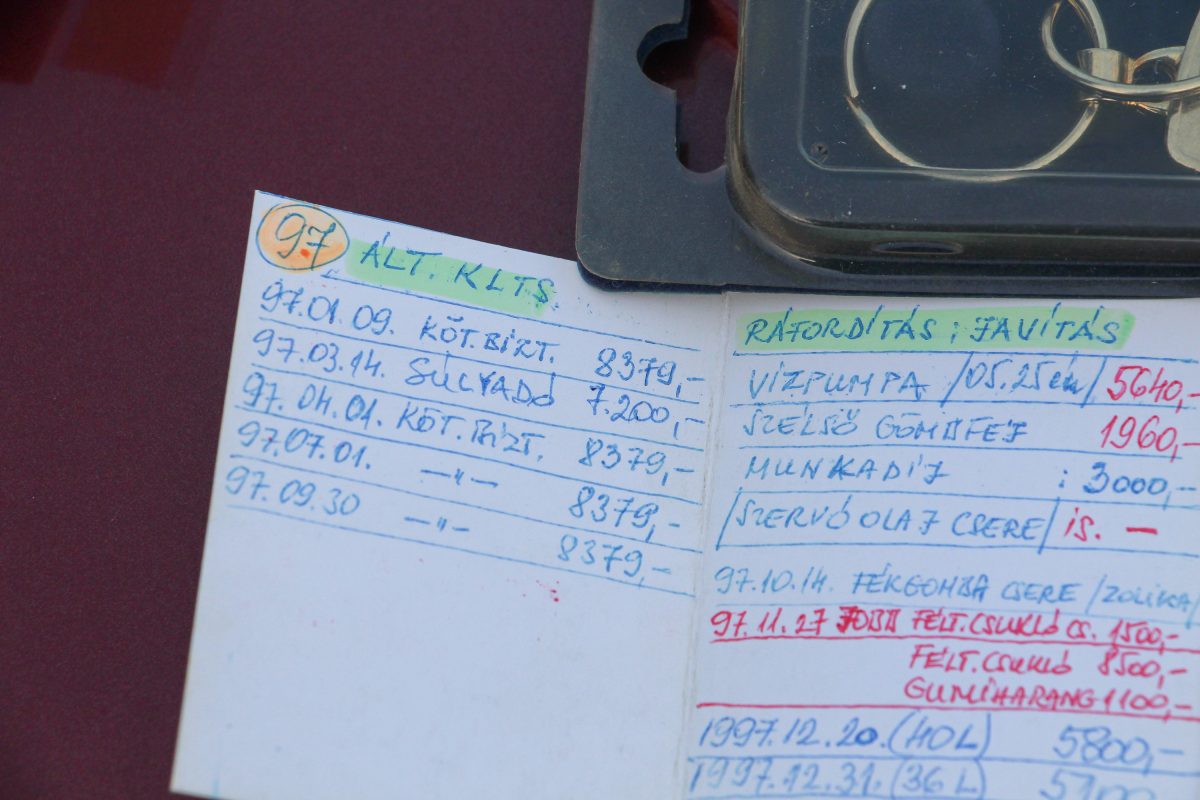 97 ÁLT. KLTS
97.01.09. KÖT.BIZT. 8379,-
97.03.14. SÚLYADÓ 7.200,-
97.04.01. KÖT.BIZT. 8379,-
97.07.01. —"— 8379,-
97.09.30 —"— 8379,-
RÁFORDÍTÁS; JAVÍTÁS
VIZPUMPA /05.25én/ 5640,-
SZÉLSŐ GÖMBFEJ 1960,-
MUNKADÍJ : 3000,-
/SZERVÓ OLAJ CSERE/ is. —
97.10.14. FÉKGOMBA CSERE /ZOLIKA/
97.11.27 JOBB FÉLT.CSUKLÓ CS. 1500,-
FÉLT.CSUKLÓ 8500,-
GUMIHARANG 1100,-
1997.12.20.(40L) 5800,-
1997.12.31.(36L)